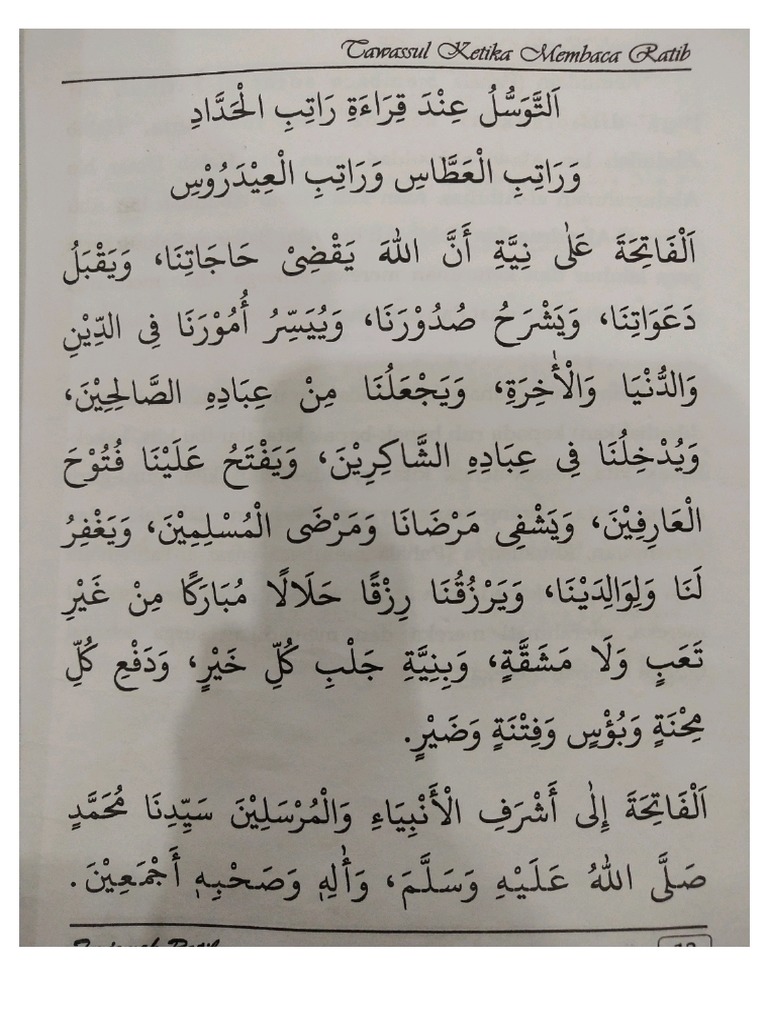 Tawassul Ketika Membaca Ratib
اَلتَّوَسُّلُ عِنْدَ قِرَاءَةِ رَاتِبِ الْحَدَّادِ
وَرَاتِبِ الْعَطَّاسِ وَرَاتِبِ الْعِيْدَرُوْسِ
اَلْفَاتِحَةَ عَلٰى نِيَّةِ أَنَّ اللهَ يَقْضِىْ حَاجَاتِنَا، وَيَقْبَلُ
دَعَوَاتِنَا، وَيَشْرَحُ صُدُوْرَنَا، وَيُيَسِّرُ أُمُوْرَنَا فِى الدِّيْنِ
وَالدُّنْيَا وَالْأٰخِرَةِ، وَيَجْعَلُنَا مِنْ عِبَادِهِ الصَّالِحِيْنَ،
وَيُدْخِلُنَا فِى عِبَادِهِ الشَّاكِرِيْنَ، وَيَفْتَحُ عَلَيْنَا فُتُوْحَ
الْعَارِفِيْنَ، وَيَشْفِى مَرْضَانَا وَمَرْضَى الْمُسْلِمِيْنَ، وَيَغْفِرُ
لَنَا وَلِوَالِدَيْنَا، وَيَرْزُقُنَا رِزْقًا حَلَالًا مُبَارَكًا مِنْ غَيْرِ
تَعَبٍ وَلَا مَشَقَّةٍ، وَبِنِيَّةِ جَلْبِ كُلِّ خَيْرٍ، وَدَفْعِ كُلِّ
مِحْنَةٍ وَبُؤْسٍ وَفِتْنَةٍ وَضَيْرٍ.
اَلْفَاتِحَةَ إِلٰى أَشْرَفِ الْأَنْبِيَاءِ وَالْمُرْسَلِيْنَ سَيِّدِنَا مُحَمَّدٍ
صَلَّى اللهُ عَلَيْهِ وَسَلَّمَ، وَأٰلِهٖ وَصَحْبِهٖ أَجْمَعِيْنَ.